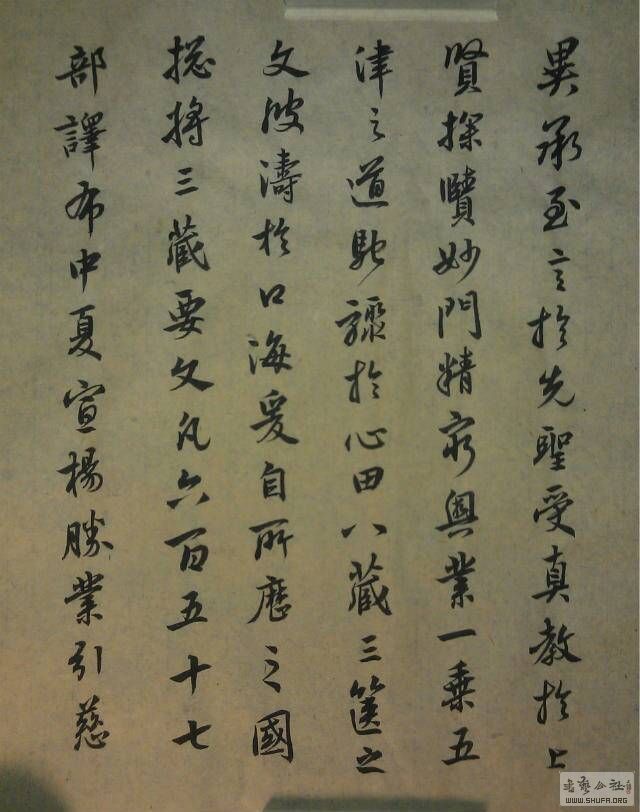 異承至言於先聖受真教於上
賢探賾妙門精窮奧業一乘五
津之道馳驟於心田八藏三篋之
文波濤於口海爰自所歷之國
揔將三藏要文凡六百五十七
部譯布中夏宣揚勝業引慈
WWW.SHUFA.ORG